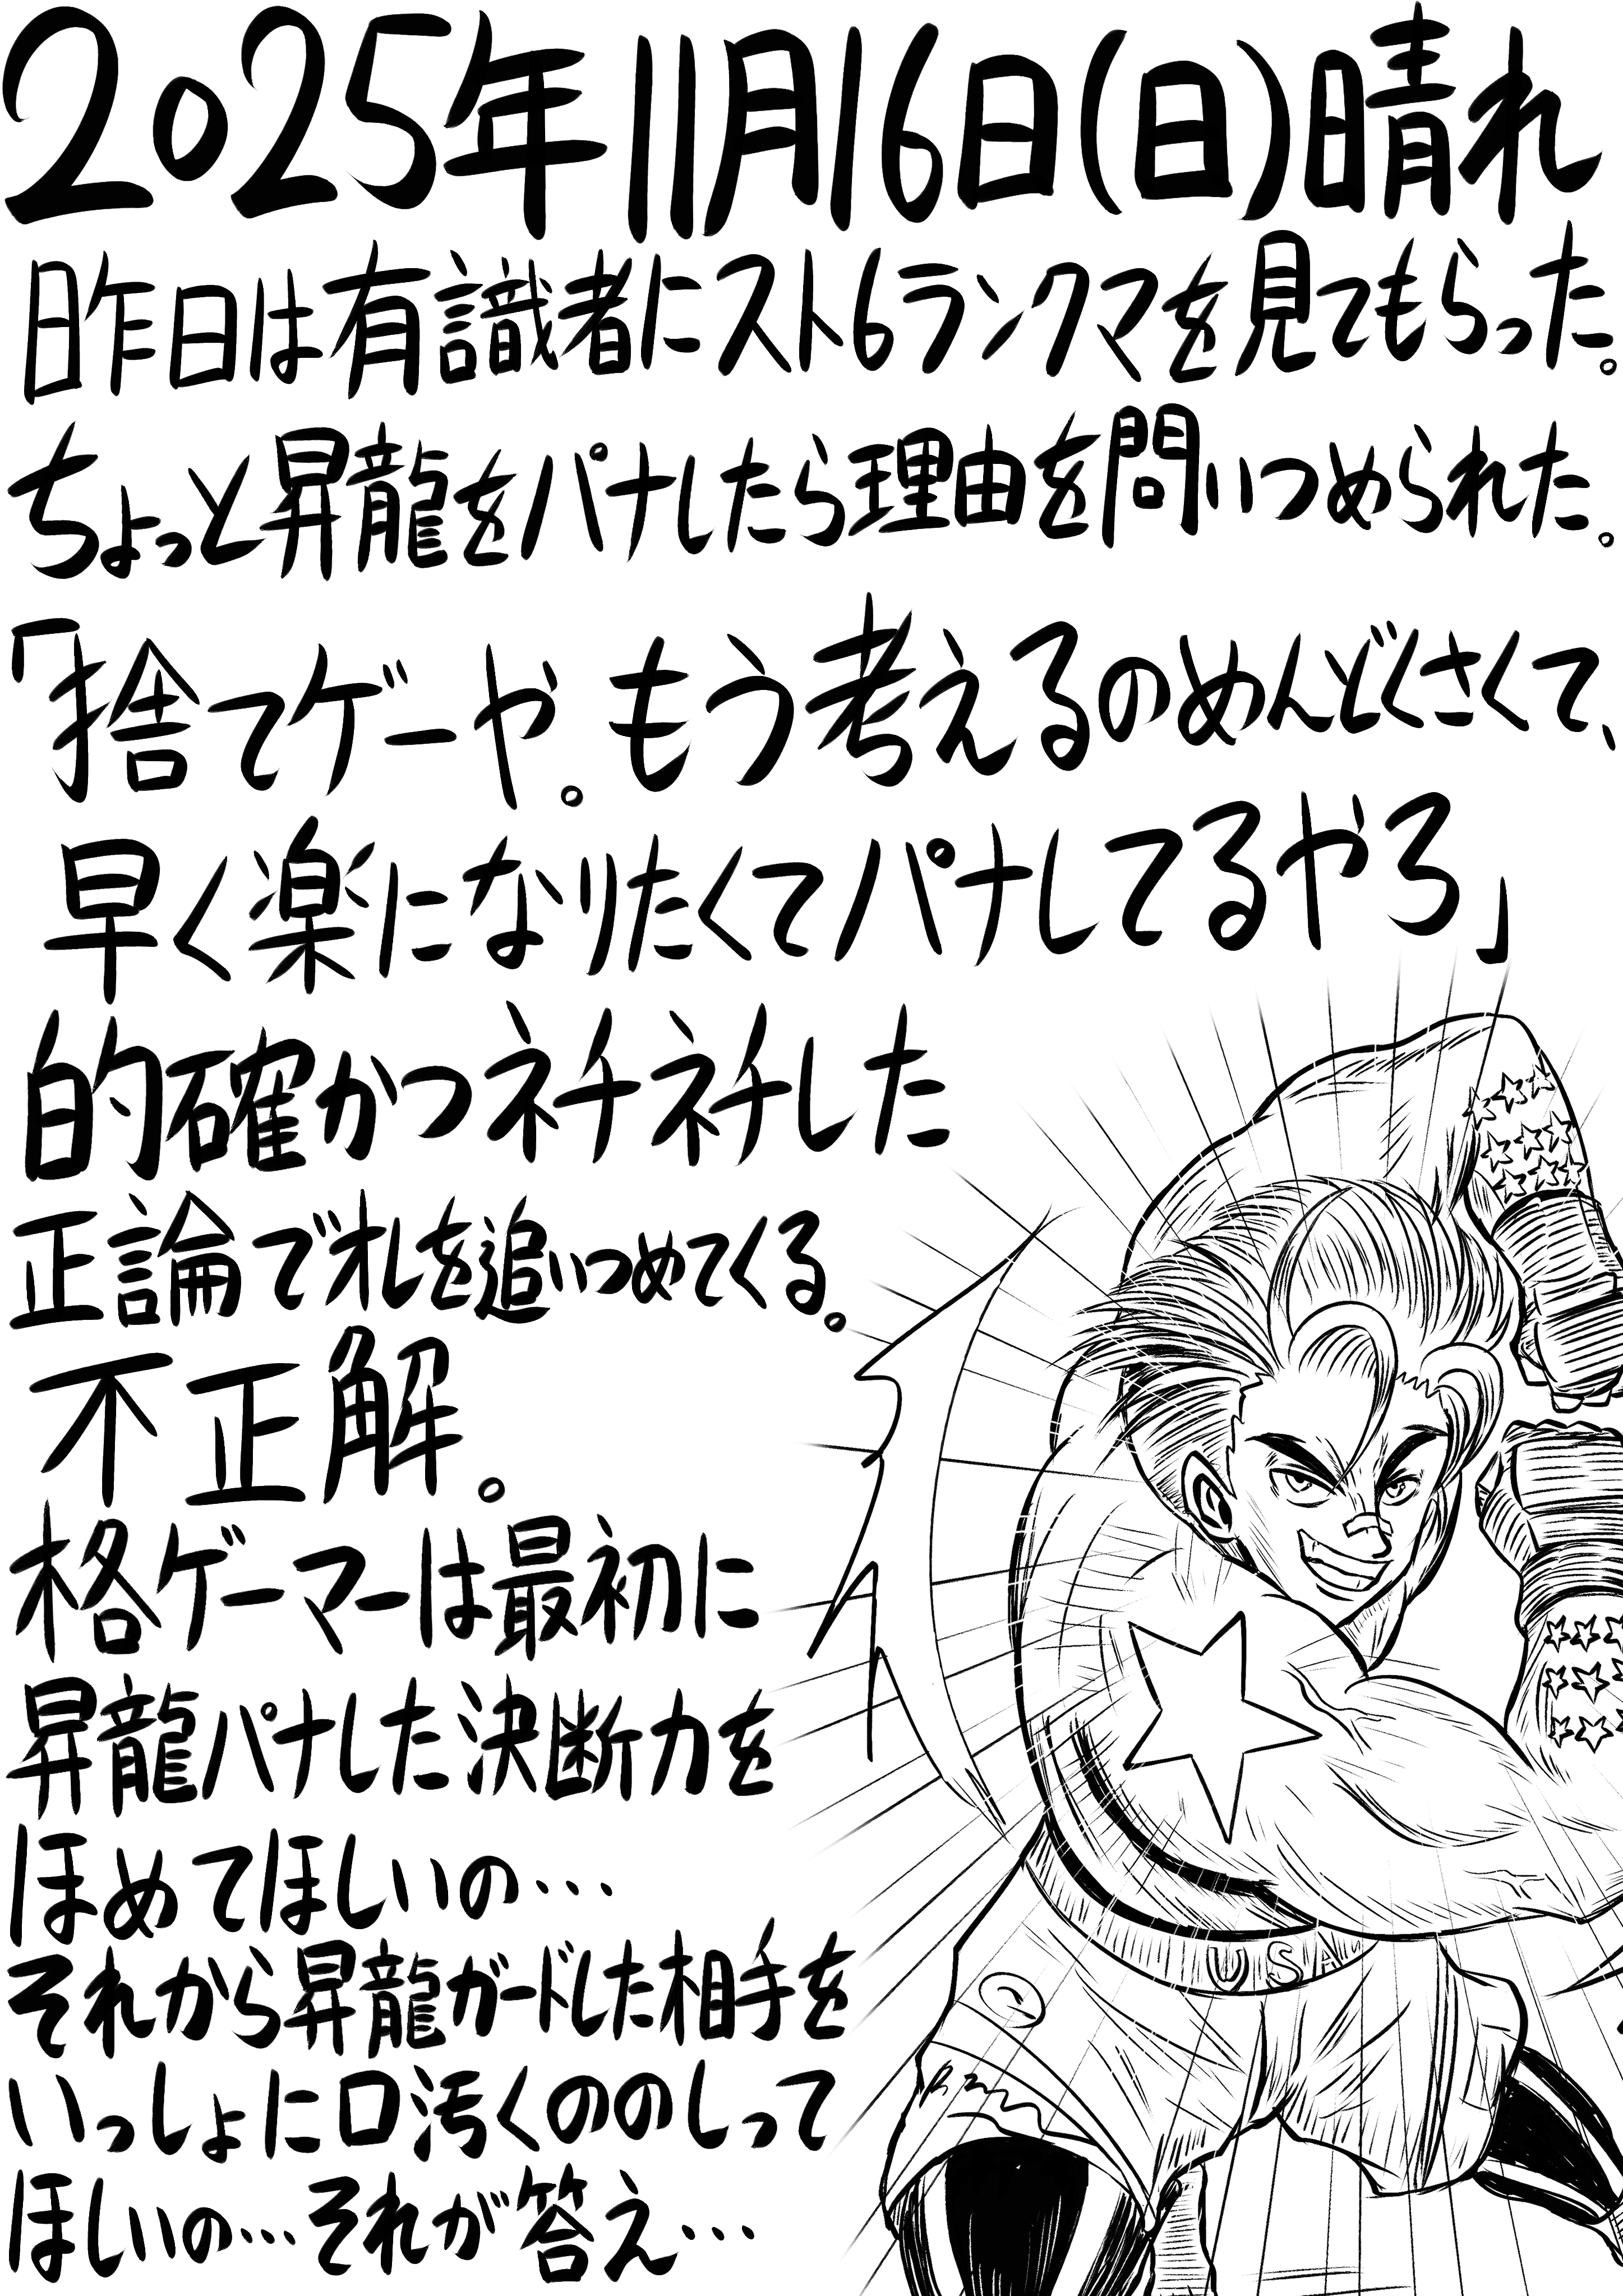 2025年11月16日(日)晴れ
昨日は有識者にスト6ランクマを見てもらった。
ちょっと昇龍をパナしたら理由を問いつめられた。
「捨てゲーや。もう考えるのめんどくさくて、
早く楽になりたくてパナしてるやろ」
的確かつネチネチした
正論でオレを追いつめてくる。
不正解。
格ゲーマーは最初に
昇龍パナした決断力を
ほめてほしいの…
それから昇龍ガードした相手を
いっしょに口汚くののしって
ほしいの…それが答え…
USA